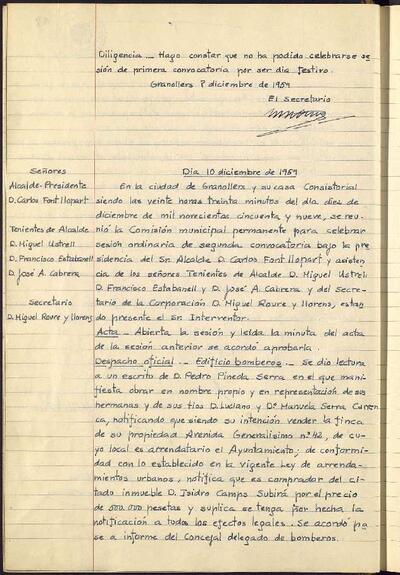 Diligencia _ Hago constar que no ha podido celebrarse se
sión de primera convocatoria por ser día festivo.
Granollers 8 diciembre de 1959
El Secretario
Día 10 diciembre de 1959
Señores
Alcalde-Presidente
D. Carlos Font Llopart
Tenientes de Alcalde
D. Miguel Ustrell
D. Francisco Estabanell
D. José A. Cabrera
Secretario
D. Miguel Roure y Llorens
En la ciudad de Granollers y su casa Consistorial
siendo las veinte horas treinta minutos del día diez de
diciembre de mil novecientos cincuenta y nueve, se reu-
nió la Comisión municipal permanente para celebrar
sesión ordinaria de segunda convocatoria bajo la pre
sidencia del Sr. Alcalde D. Carlos Font Llopart y asisten
cia de los señores Tenientes de Alcalde D. Miguel Ustrell
D. Francisco Estabanell y D. José A. Cabrera y del Secre-
tario de la Corporación D. Miguel Roure y Llorens, estan
do presente el Sr. Interventor.
Acta _ Abierta la sesión y leída la minuta del acta
de la sesión anterior se acordó aprobarla.
Despacho oficial _ Edificio bomberos. _ Se dio lectura
a un escrito de D. Pedro Pineda Serra en el que mani
fiesta obrar en nombre propio y en representación de sus
hermanas y de sus tíos D. Luciano y Dª Manuela Serra
ca, notificando que siendo su intención vender la finca
de su propiedad Avenida Generalísimo nº 42, de cu-
yo local es arrendatario el Ayuntamiento; de conformi-
dad con lo establecido en la vigente Ley de arrenda-
mientos urbanos, notifica que es comprador del ci-
tado inmueble D. Isidro Camps Subirá por el precio
de 500.000 pesetas y suplica se tenga por hecha la
notificación a todos los efectos legales. Se acordó pa
se a informe del Concejal delegado de bomberos.